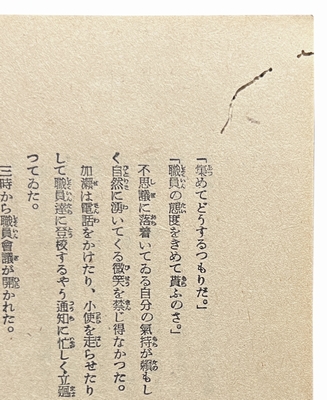 「集めてどうするつもりだ。」
「職員の態度をきめて貰ふのさ。」
不思議に落着いてゐる自分の氣持が頼もし
く自然に湧いてくる微笑を禁じ得なかつた。
加瀬は電話をかけたり、小使を走らせたり
して職員達に登校するやう通知に忙しく立廻
つてゐた。
三時から職員會議が開かれた。